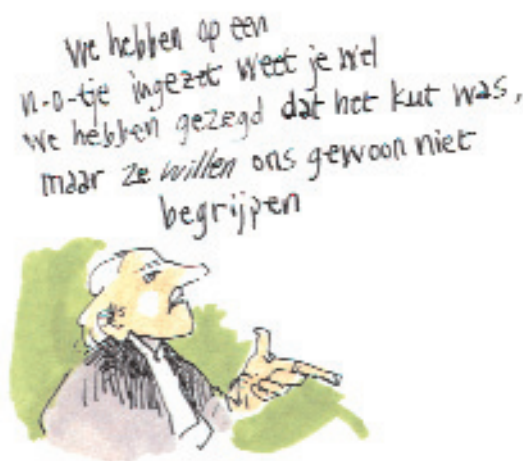 We hebben op een
n-o-tje ingezet weet je wel
We hebben gezegd dat het kut was,
maar ze willen ons gewoon niet
begrijpen